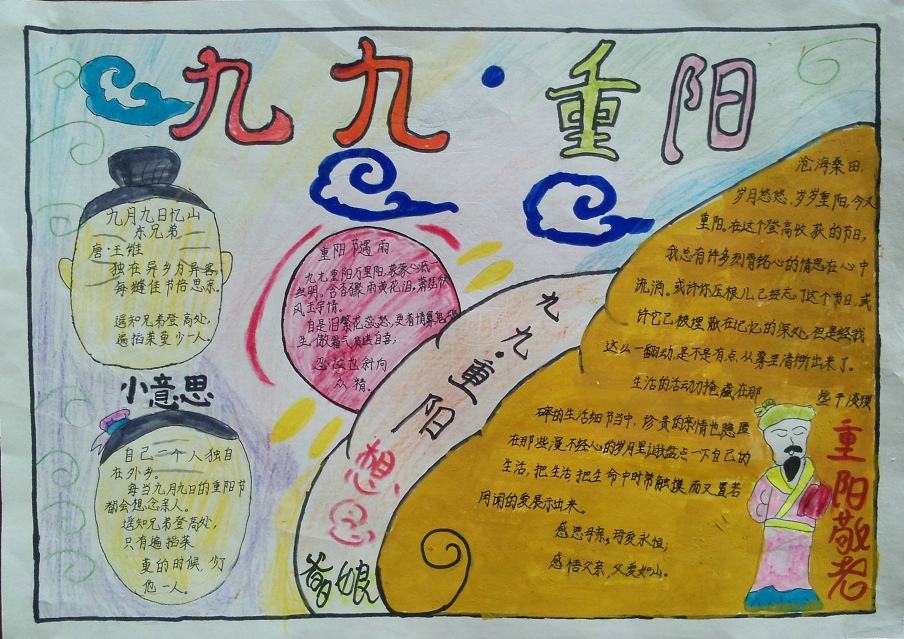 九九·重阳
九月九日忆山
东兄弟
唐·王维
独在异乡为异客
每缝佳节倍思亲.
遥知兄弟登高处,
遍插菜更少一人.
小意思
自己一个人独自
在外乡.
每当九月九日的重阳节
都会想念亲人.
遥知兄弟登高处,
只有遍插菜
更的时候,少了
他一人.
重阳节遇雨
九九重阳万里阳
风玉宇情.
众精.
九九·重阳
想
爹娘
沧海桑田,
岁月悠悠,岁岁重阳.今又
重阳,在这个登高秋的节日,
我总有许多刻骨铭心的情思在心中
流淌。或许你压根儿已经忘了这个节日,或
许它已被埋藏在记忆的深处,但是经我
这么一翻动,是不是有点从雾里清晰出来了。
生活的活动力掩藏在那
些平淡琐
碎的生活细节当中,珍贵的亲情也隐匿
在那些漫不经心的岁月里让我盘点一下自己的
生活,把生活把生命中时常触摸而又置若
罔闻的爱展示出来。
感恩母亲,母爱永恒;
感悟父亲,父爱如山.
重阳敬老